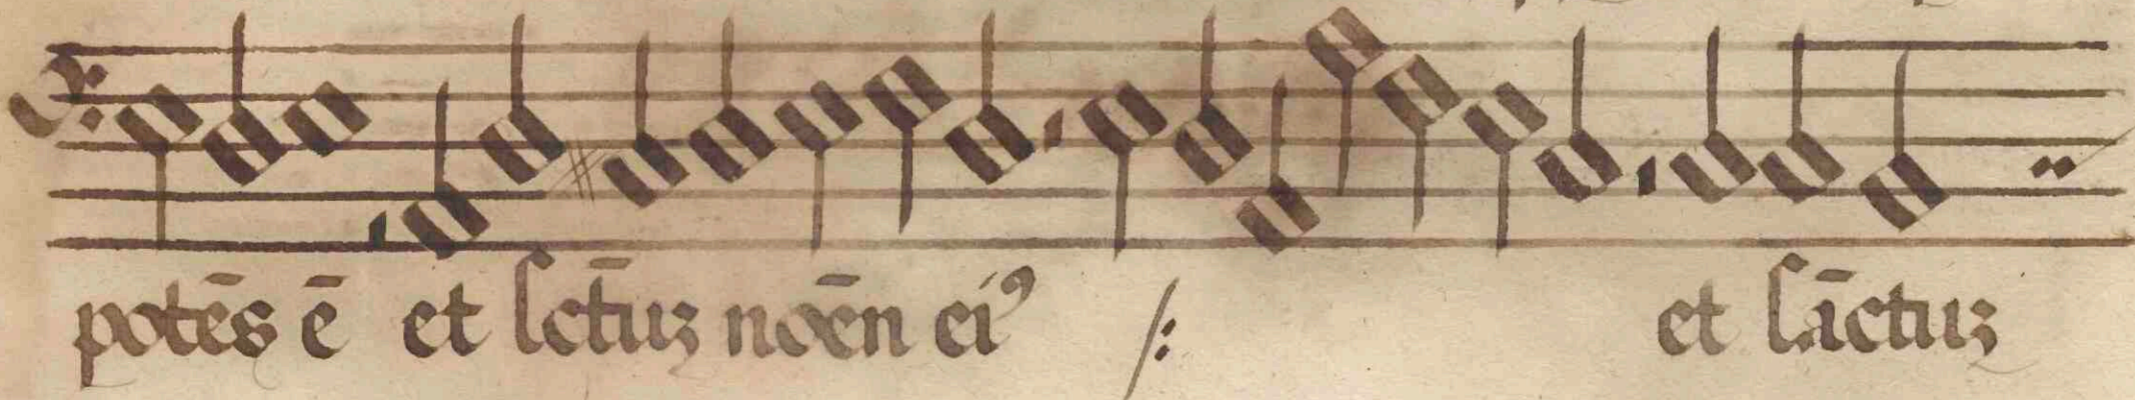 potēs ē et sctūꝫ noēn eiꝰ /: et sāctuꝫ